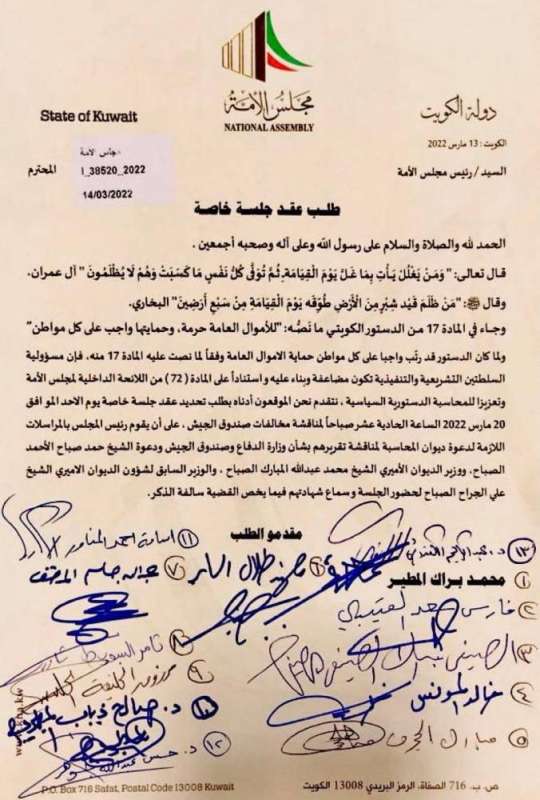 مجلس الأمة
NATIONAL ASSEMBLY
State of Kuwait
دولة الكويت
مجلس الامة
I_38520_2022
14/03/2022
الكويت : 13 مارس 2022
السيد / رئيس مجلس الأمة
المحترم
طلب عقد جلسة خاصة
الحمد لله والصلاة والسلام على رسول الله وعلى آله وصحبه أجمعين .
قال تعالى: " وَمَنْ يَغْلُلْ يَأْتِ بِمَا غَلَّ يَوْمَ الْقِيَامَةِ ثُمَّ تُوَفَّى كُلُّ نَفْسٍ مَا كَسَبَتْ وَهُمْ لَا يُظْلَمُونَ " آل عمران.
وقال ﷺ: "مَنْ ظَلَمَ قَيْدَ شِبْرٍ مِنَ الْأَرْضِ طُوِّقَهُ يَوْمَ الْقِيَامَةِ مِنْ سَبْعِ أَرَضِينَ" البخاري.
وجاء في المادة 17 من الدستور الكويتي ما نَصُّه: "للأموال العامة حرمة، وحمايتها واجب على كل مواطن"
ولما كان الدستور قد رتّب واجبا على كل مواطن حماية الاموال العامة وفقاً لما نصت عليه المادة 17 منه، فإن مسؤولية
السلطتين التشريعية والتنفيذية تكون مضاعفة وبناء عليه واستناداً على المادة ( 72 ) من اللائحة الداخلية لمجلس الأمة
وتعزيزا للمحاسبة الدستورية السياسية ، نتقدم نحن الموقعون أدناه بطلب تحديد عقد جلسة خاصة يوم الاحد المو افق
20 مارس 2022 الساعة الحادية عشر صباحاً لمناقشة مخالفات صندوق الجيش ، على أن يقوم رئيس المجلس بالمراسلات
اللازمة لدعوة ديوان المحاسبة لمناقشة تقريرهم بشأن وزارة الدفاع وصندوق الجيش ودعوة الشيخ حمد صباح الأحمد
الصباح، ووزير الديوان الأميري الشيخ محمد عبدالله المبارك الصباح ، والوزير السابق لشؤون الديوان الاميري الشيخ
علي الجراح الصباح لحضور الجلسة وسماع شهادتهم فيما يخص القضية سالفة الذكر.
مقدمو الطلب
١٣ د. عبدالكريم الكندري
١١ اسامة احمد المناور
١ محمد براك المطير
٦ مهند طلال الساير
٧ عبدالله جاسم المضف
٢ فارس سعد العتيبي
٨ ثامر السويط
٣ الصيفي مبارك الصيفي
٩ مرزوق الخليفة
٤ خالد المونس
١٠ د. صالح ذياب المطيري
٥ مبارك الحجرف
١٢ د. حسن عبدالله جوهر
www.kna.kw
P.O. Box 716 Safat, Postal Code 13008 Kuwait
ص. ب. 716 الصفاة، الرمز البريدي 13008 الكويت